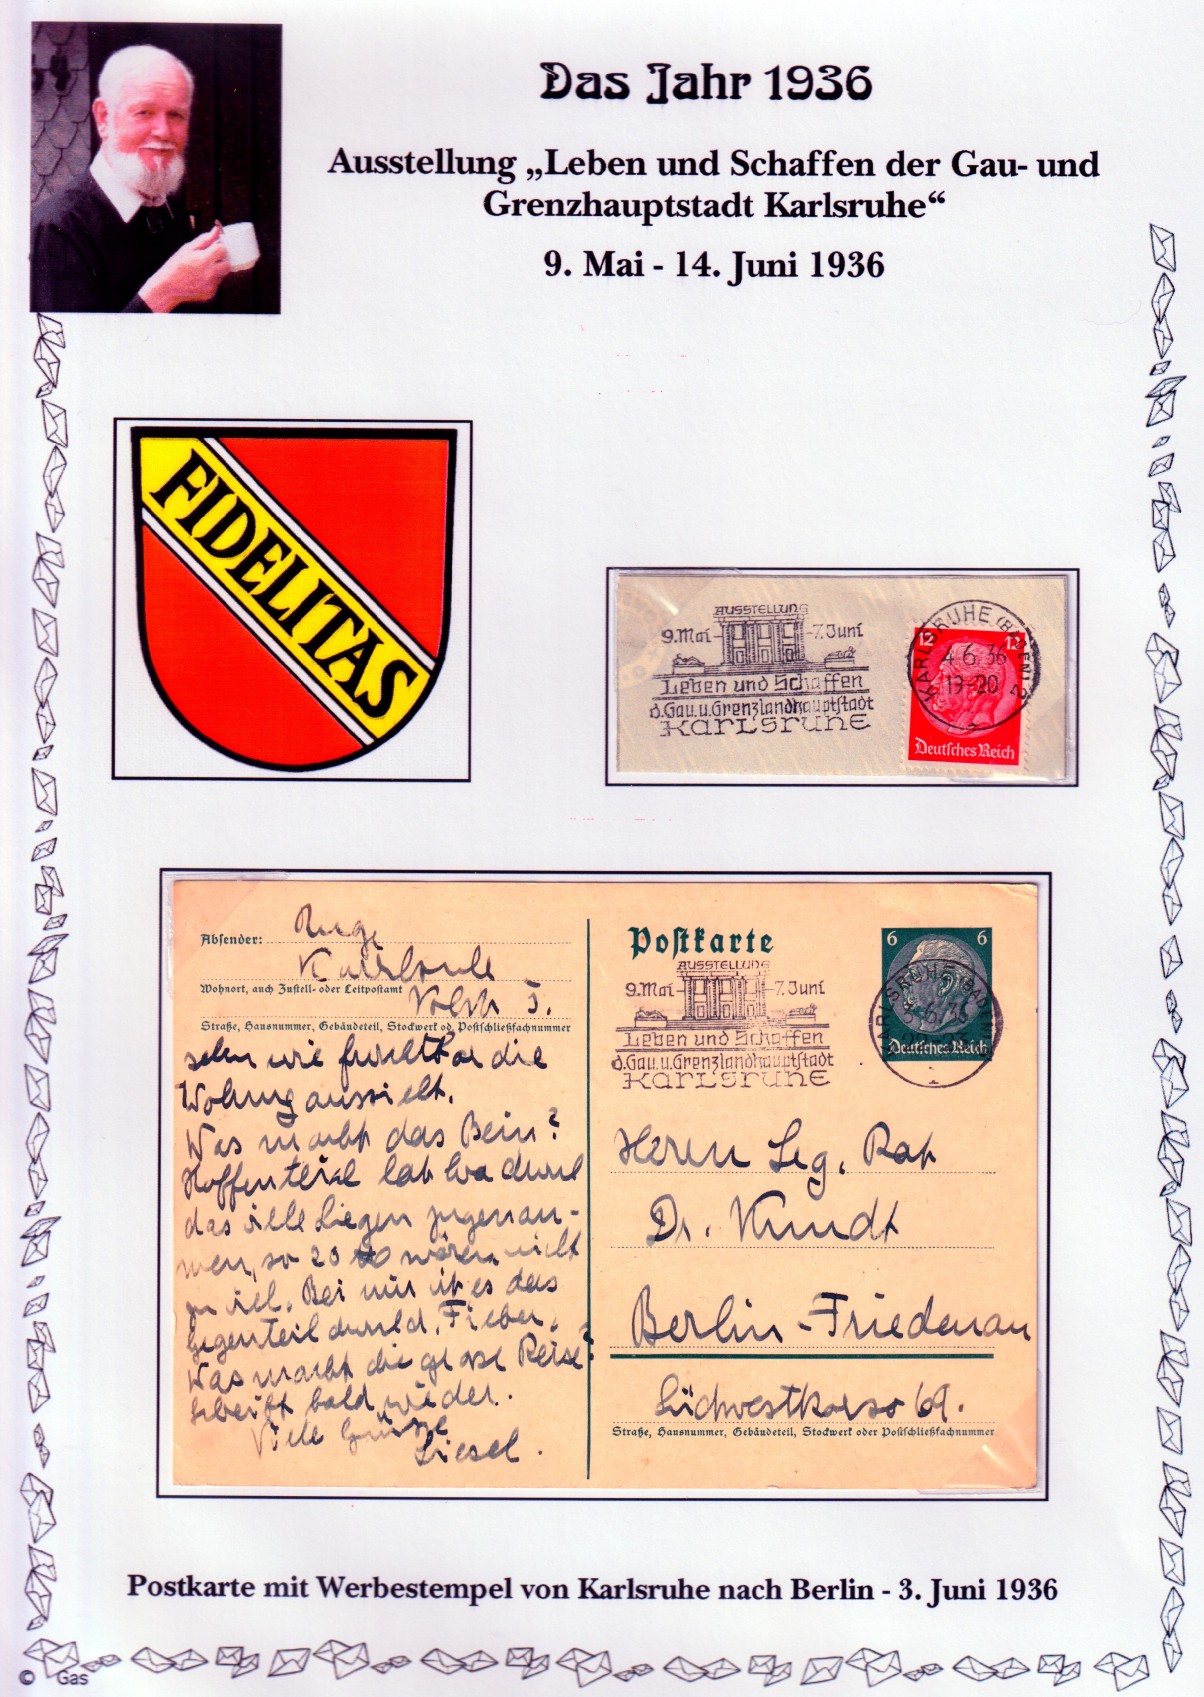 Das Jahr 1936
Ausstellung „Leben und Schaffen der Gau- und
Grenzhauptstadt Karlsruhe“
9. Mai - 14. Juni 1936
FIDELITAS
AUSSTELLUNG
9. Mai - 7. Juni
Leben und Schaffen
d. Gau. u. Grenzlandhauptstadt
KARLSRUHE
KARLSRUHE (BADEN) 2
4.6.36
19-20
12 12
Deutsches Reich
Absender:
Karlsruhe
Wohnort, auch Zustell- oder Leitpostamt
Straße, Hausnummer, Gebäudeteil, Stockwerk od. Postschließfachnummer
sehen wie furchtbar die
Wohnung aussieht.
Was macht das Bein?
Hoffentlich hat Eva durch
das viele Liegen zugenom-
men, so 20 wären nicht
zu viel. Bei mir ist es das
Gegenteil durch d. Fieber.
Was macht die grosse Reise?
Schreibt bald wieder.
Viele Grüsse
Liesel.
Postkarte
AUSSTELLUNG
9. Mai - 7. Juni
Leben und Schaffen
d. Gau. u. Grenzlandhauptstadt
KARLSRUHE
6 6
KARLSRUHE (BADEN)
3.6.36
Deutsches Reich
Herrn Leg. Rat
Dr. Kundt
Berlin-Friedenau
Südwestkorso 69.
Straße, Hausnummer, Gebäudeteil, Stockwerk oder Postschließfachnummer
Postkarte mit Werbestempel von Karlsruhe nach Berlin - 3. Juni 1936
© Gas